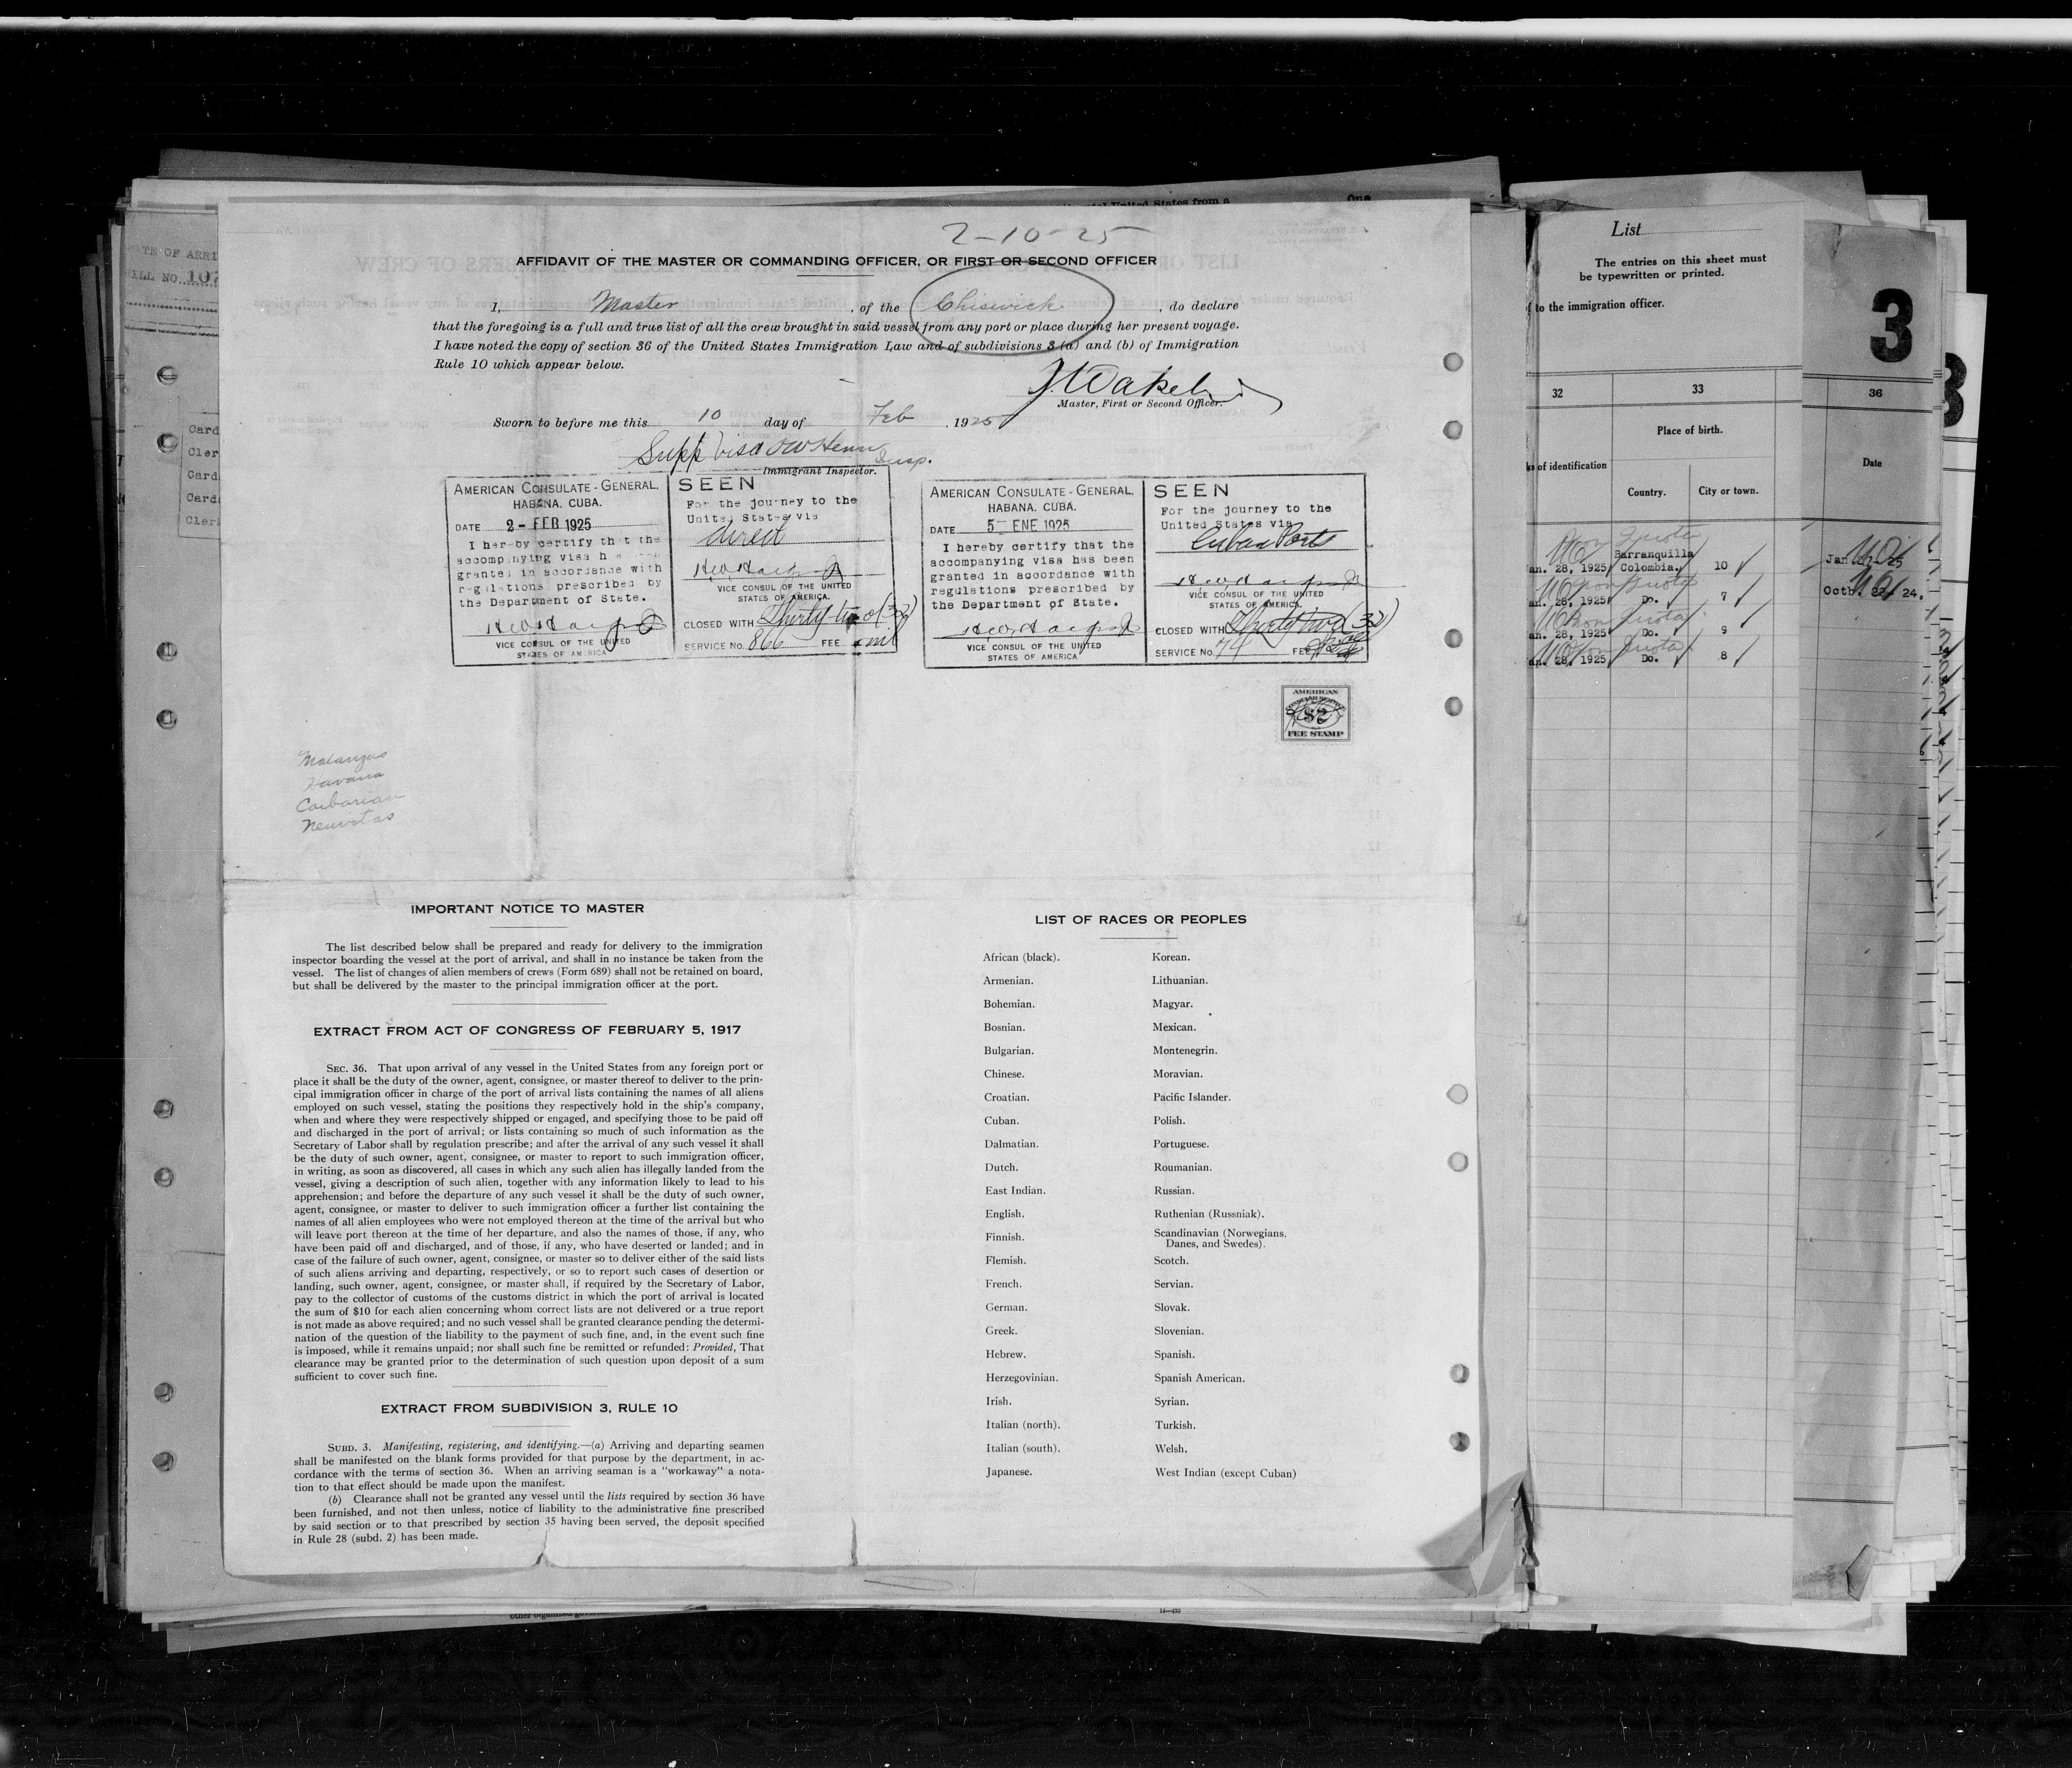 2-10-25
AFFIDAVIT OF THE MASTER OR COMMANDING OFFICER, OR FIRST OR SECOND OFFICER
I, Master, of the Chiswick, do declare
that the foregoing is a full and true list of all the crew brought in said vessel from any port or place during her present voyage.
I have noted the copy of section 36 of the United States Immigration Law and of subdivisions 3 (a) and (b) of Immigration
Rule 10 which appear below.
Master, First or Second Officer.
Sworn to before me this 10 day of Feb, 1925
Supp visa
Insp.
Immigrant Inspector.
AMERICAN CONSULATE-GENERAL.
HABANA. CUBA.
DATE 2 - FEB 1925
I hereby certify that the
accompanying visa h
granted in accordance with
regulations prescribed by
the Department of State.
VICE CONSUL OF THE UNITED
STATES OF AMERICA
SEEN
For the journey to the
United States via
direct
VICE CONSUL OF THE UNITED
STATES OF AMERICA.
CLOSED WITH Thirty-two (32)
SERVICE No. 866 FEE nil
AMERICAN CONSULATE-GENERAL.
HABANA. CUBA.
DATE 5 ENE 1925
I hereby certify that the
accompanying visa has been
granted in accordance with
regulations prescribed by
the Department of State.
VICE CONSUL OF THE UNITED
STATES OF AMERICA
SEEN
For the journey to the
United States via
Cuban Ports
VICE CONSUL OF THE UNITED
STATES OF AMERICA.
CLOSED WITH Thirty two (32)
SERVICE No. 74 FEE
AMERICAN
CONSULAR SERVICE
$2
FEE STAMP
Matanzas
Havana
Caibarian
Neuvitas
IMPORTANT NOTICE TO MASTER
The list described below shall be prepared and ready for delivery to the immigration
inspector boarding the vessel at the port of arrival, and shall in no instance be taken from the
vessel. The list of changes of alien members of crews (Form 689) shall not be retained on board,
but shall be delivered by the master to the principal immigration officer at the port.
EXTRACT FROM ACT OF CONGRESS OF FEBRUARY 5, 1917
SEC. 36. That upon arrival of any vessel in the United States from any foreign port or
place it shall be the duty of the owner, agent, consignee, or master thereof to deliver to the prin-
cipal immigration officer in charge of the port of arrival lists containing the names of all aliens
employed on such vessel, stating the positions they respectively hold in the ship's company,
when and where they were respectively shipped or engaged, and specifying those to be paid off
and discharged in the port of arrival; or lists containing so much of such information as the
Secretary of Labor shall by regulation prescribe; and after the arrival of any such vessel it shall
be the duty of such owner, agent, consignee, or master to report to such immigration officer,
in writing, as soon as discovered, all cases in which any such alien has illegally landed from the
vessel, giving a description of such alien, together with any information likely to lead to his
apprehension; and before the departure of any such vessel it shall be the duty of such owner,
agent, consignee, or master to deliver to such immigration officer a further list containing the
names of all alien employees who were not employed thereon at the time of the arrival but who
will leave port thereon at the time of her departure, and also the names of those, if any, who
have been paid off and discharged, and of those, if any, who have deserted or landed; and in
case of the failure of such owner, agent, consignee, or master so to deliver either of the said lists
of such aliens arriving and departing, respectively, or so to report such cases of desertion or
landing, such owner, agent, consignee, or master shall, if required by the Secretary of Labor,
pay to the collector of customs of the customs district in which the port of arrival is located
the sum of $10 for each alien concerning whom correct lists are not delivered or a true report
is not made as above required; and no such vessel shall be granted clearance pending the determi-
nation of the question of the liability to the payment of such fine, and, in the event such fine
is imposed, while it remains unpaid; nor shall such fine be remitted or refunded: Provided, That
clearance may be granted prior to the determination of such question upon deposit of a sum
sufficient to cover such fine.
EXTRACT FROM SUBDIVISION 3, RULE 10
SUBD. 3. Manifesting, registering, and identifying.—(a) Arriving and departing seamen
shall be manifested on the blank forms provided for that purpose by the department, in ac-
cordance with the terms of section 36. When an arriving seaman is a "workaway" a nota-
tion to that effect should be made upon the manifest.
(b) Clearance shall not be granted any vessel until the lists required by section 36 have
been furnished, and not then unless, notice of liability to the administrative fine prescribed
by said section or to that prescribed by section 35 having been served, the deposit specified
in Rule 28 (subd. 2) has been made.
LIST OF RACES OR PEOPLES
African (black). Korean.
Armenian. Lithuanian.
Bohemian. Magyar.
Bosnian. Mexican.
Bulgarian. Montenegrin.
Chinese. Moravian.
Croatian. Pacific Islander.
Cuban. Polish.
Dalmatian. Portuguese.
Dutch. Roumanian.
East Indian. Russian.
English. Ruthenian (Russniak).
Finnish. Scandinavian (Norwegians,
Danes, and Swedes).
Flemish. Scotch.
French. Servian.
German. Slovak.
Greek. Slovenian.
Hebrew. Spanish.
Herzegovinian. Spanish American.
Irish. Syrian.
Italian (north). Turkish.
Italian (south). Welsh.
Japanese. West Indian (except Cuban)
List
The entries on this sheet must
be typewritten or printed.
to the immigration officer.
32 33
Place of birth.
ks of identification
Country. City or town.
Non Quota
Barranquilla
an. 28, 1925 Colombia. 10
Non Quota
an. 28, 1925 Do. 7
Non Quota
an. 28, 1925 Do. 9
Non Quota
an. 28, 1925 Do. 8
3
36
Date
Octb. 22 24.
3